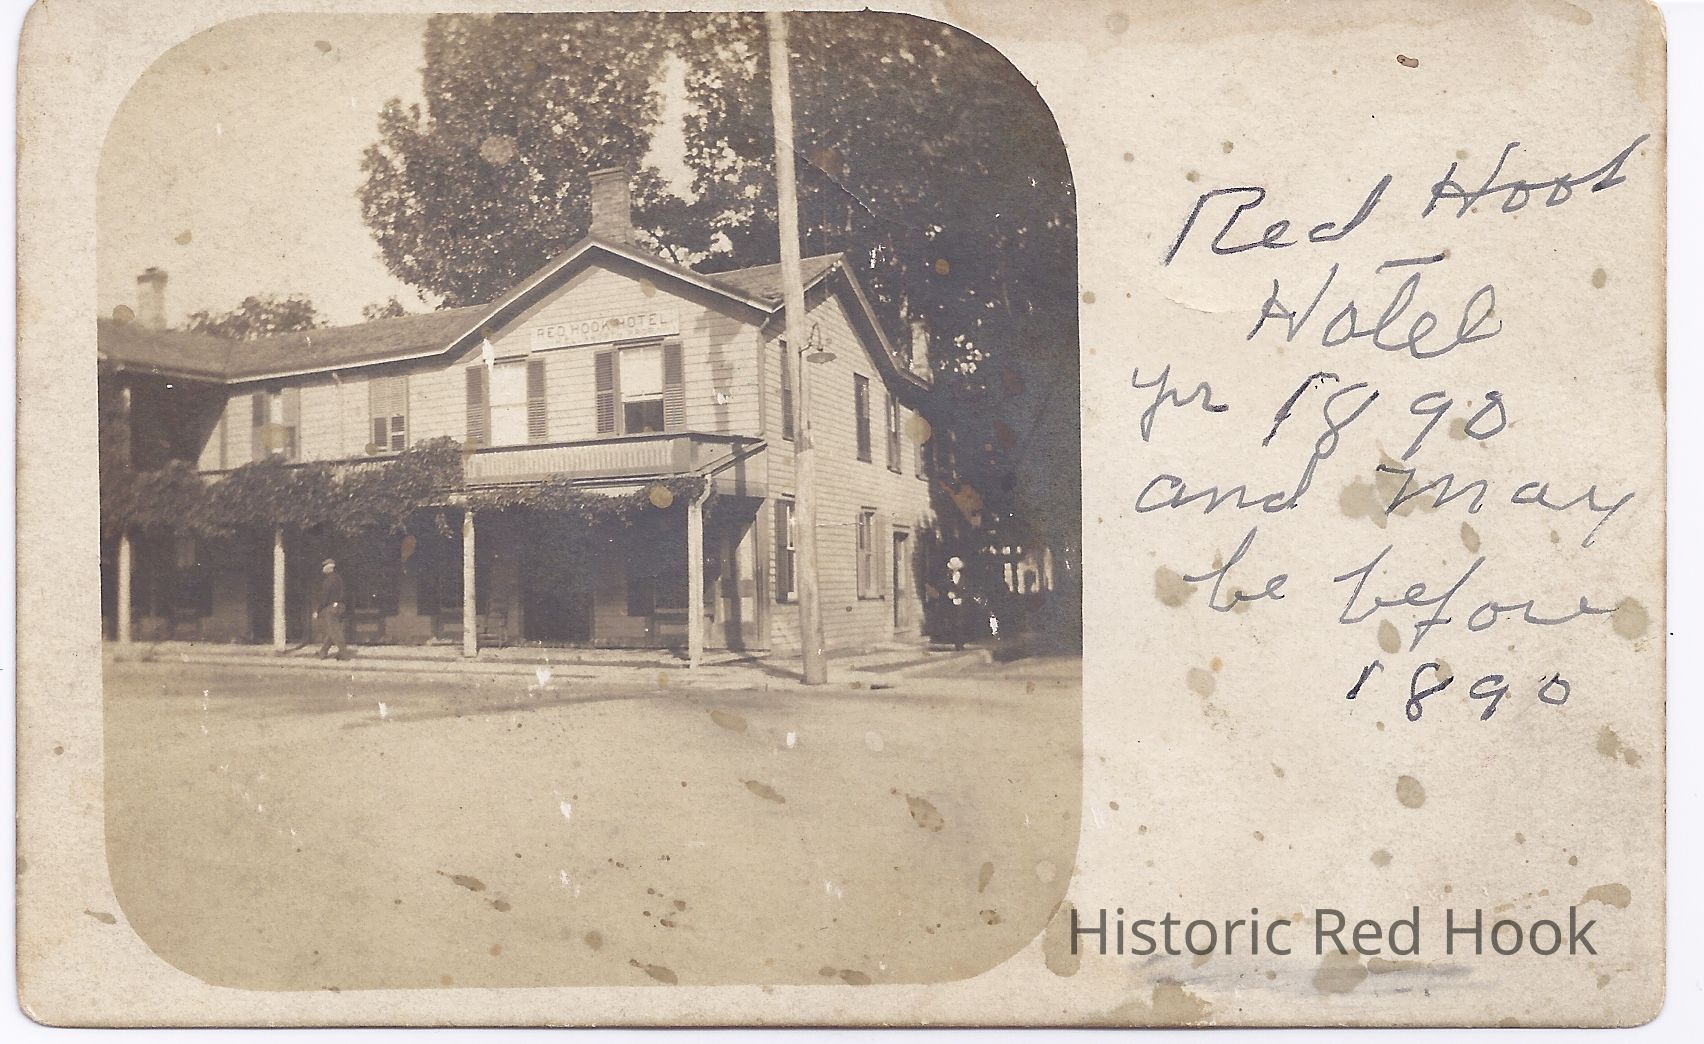 RED HOOK HOTEL
Red Hook
Hotel
yr 1890
and may
be before
1890
Historic Red Hook